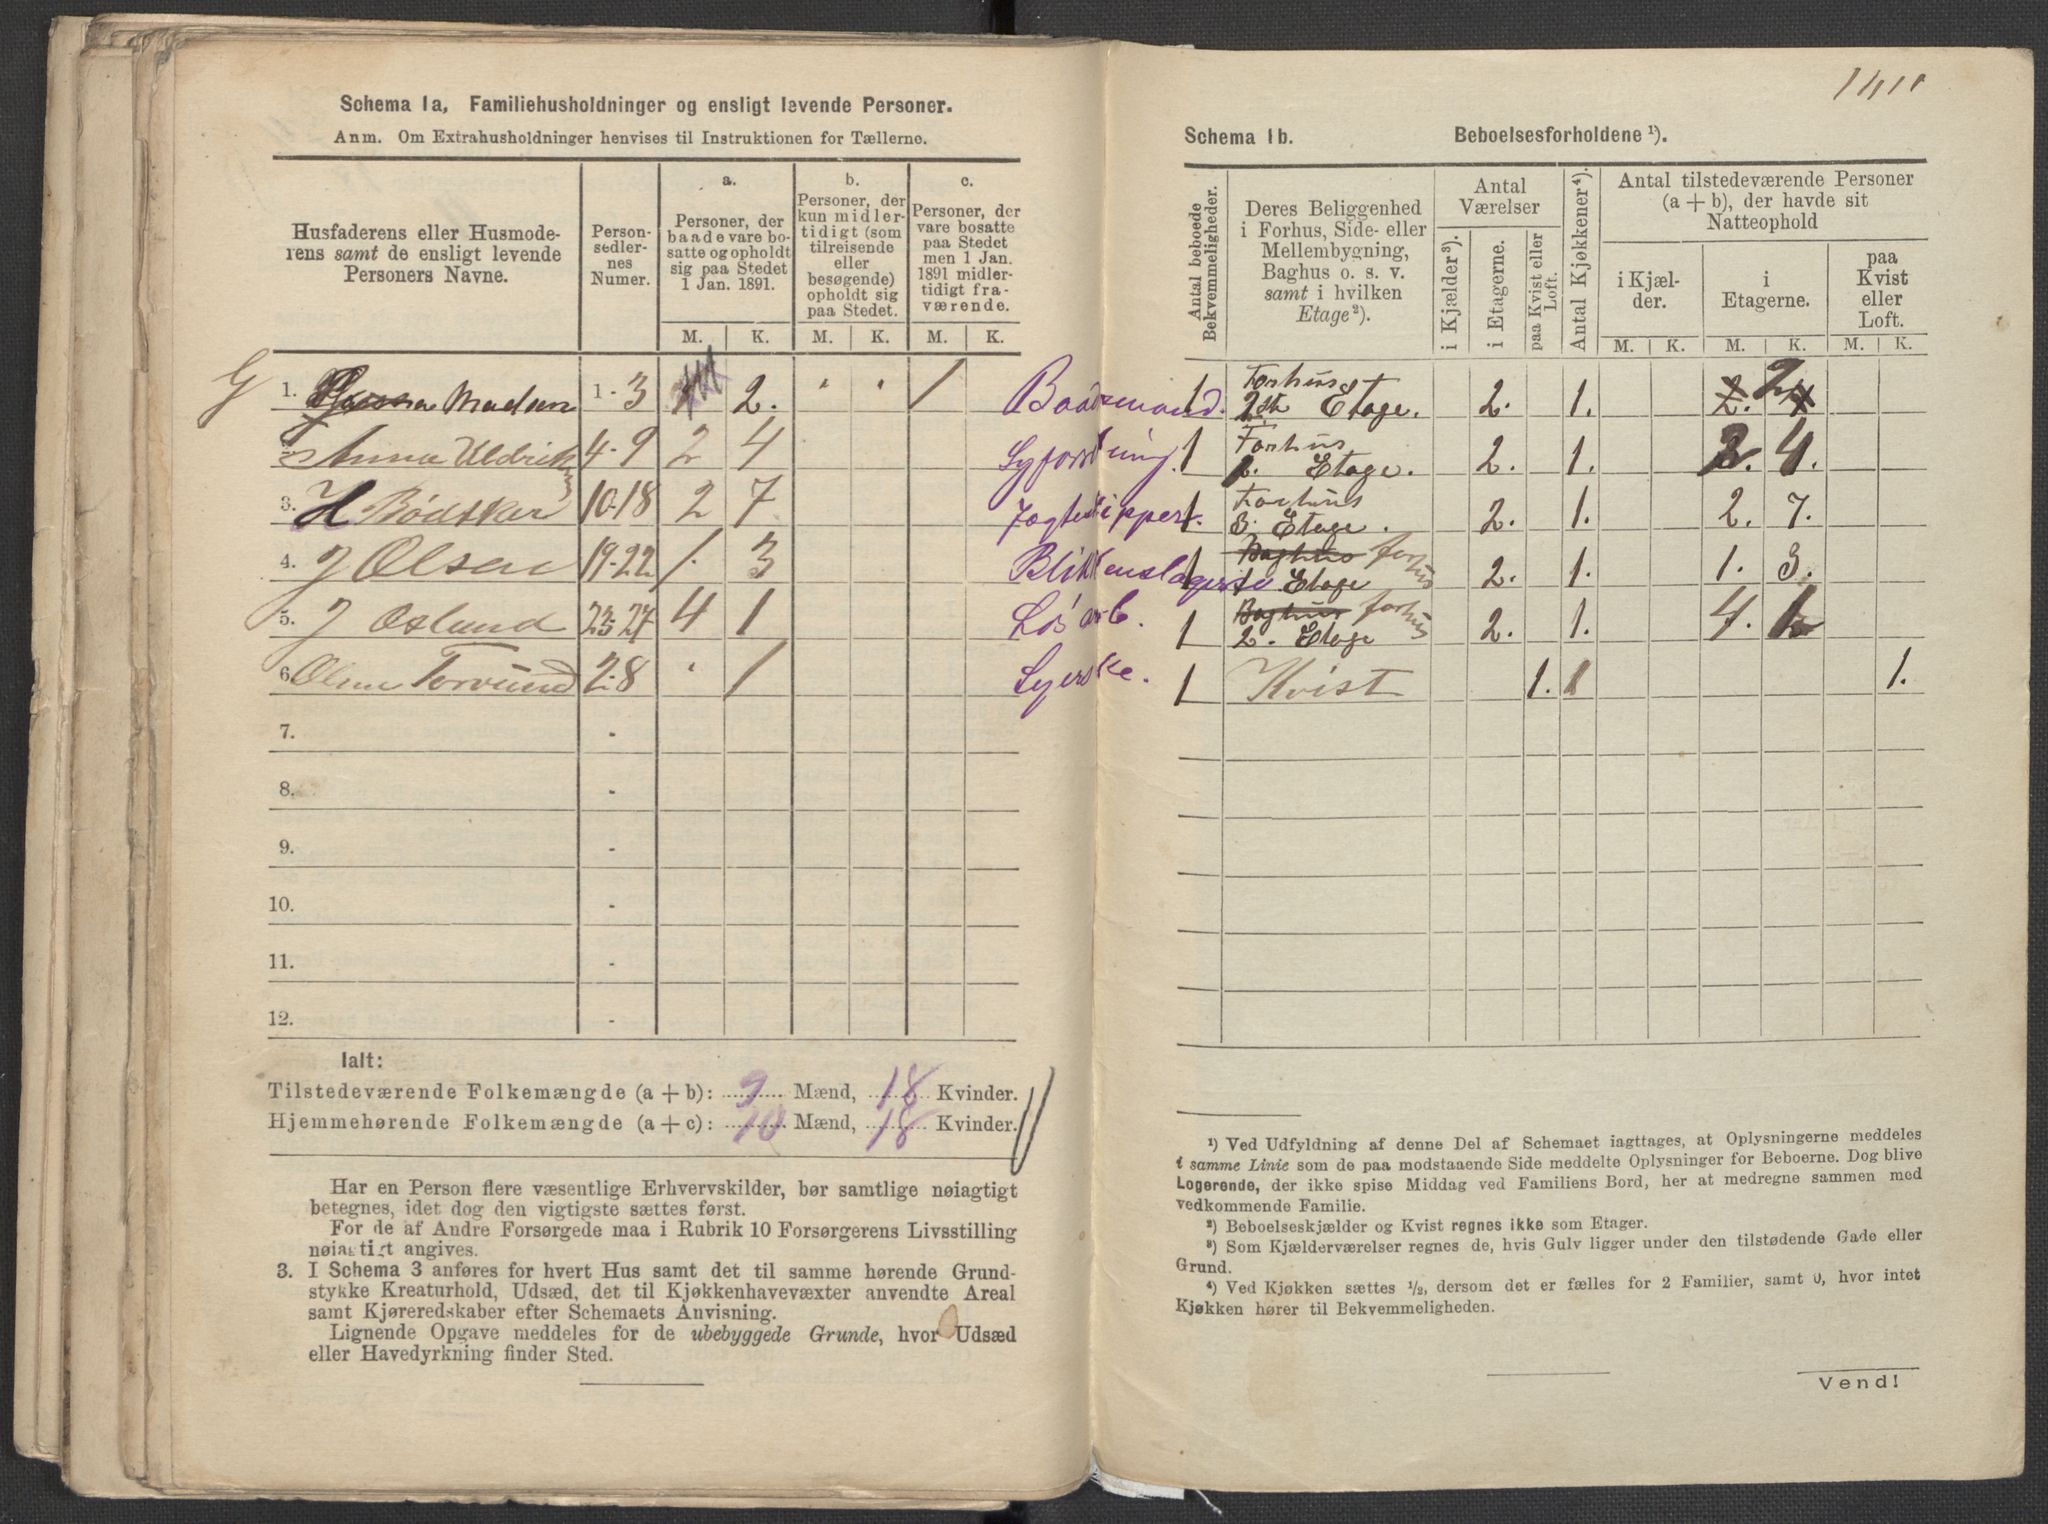 Schema 1a, Familiehusholdninger og ensligt levende Personer.
Anm. Om Extrahusholdninger henvises til Instruktionen for Tællerne.
Husfaderens eller Husmode-
rens samt de ensligt levende
Personers Navne.
Person-
sedler-
nes
Numer.
a.
Personer, der
baade vare bo-
satte og opholdt
sig paa Stedet
1 Jan. 1891.
b.
Personer, der
kun midler-
tidigt (som
tilreisende
eller
besøgende)
opholdt sig
paa Stedet.
c.
Personer, der
vare bosatte
paa Stedet
men 1 Jan.
1891 midler-
tidigt fra-
værende.
M. K. M. K. M. K.
G 1. Madsen 1-3 2. 1 Baadsmand.
2. Anna Uldrik 4-9 2 4
3. H Bødsker 10-18 2 7
4. J Olsen 19-22 1. 3 Blikkenslager
5. J Oslund 23-27 4 1 Løsarb.
6. Oline Torvund 2-8 1 Syerske.
7. -
8. -
9. -
10. -
11. -
12. -
Ialt:
Tilstedeværende Folkemængde (a + b): 9 Mænd, 18 Kvinder.
Hjemmehørende Folkemængde (a + c): 10 Mænd, 18 Kvinder.
Har en Person flere væsentlige Erhvervskilder, bør samtlige nøiagtigt
betegnes, idet dog den vigtigste sættes først.
For de af Andre Forsørgede maa i Rubrik 10 Forsørgerens Livsstilling
nøiagtigt angives.
3. I Schema 3 anføres for hvert Hus samt det til samme hørende Grund-
stykke Kreaturhold, Udsæd, det til Kjøkkenhavevæxter anvendte Areal
samt Kjøreredskaber efter Schemaets Anvisning.
Lignende Opgave meddeles for de ubebyggede Grunde, hvor Udsæd
eller Havedyrkning finder Sted.
Schema 1b. Beboelsesforholdene ¹).
Antal beboede
Bekvemmeligheder.
Deres Beliggenhed
i Forhus, Side- eller
Mellembygning,
Baghus o. s. v.
samt i hvilken
Etage ²).
Antal
Værelser
i Kjælder ³).
i Etagerne.
paa Kvist eller
Loft.
Antal Kjøkkener ⁴).
Antal tilstedeværende Personer
(a + b), der havde sit
Natteophold
i Kjæl-
der.
i
Etagerne.
paa
Kvist
eller
Loft.
M. K. M. K. M. K.
1 Forhus
Etage. 2. 1. 2.
1 Forhus
Etage. 2. 1. 4.
1 Forhus
3. Etage. 2. 1. 2. 7.
1 Baghus forhus
1. Etage 2. 1. 1. 3.
1 Baghus forhus
2. Etage 2. 1. 4. 1
1 Kvist 1. 1 1.
¹) Ved Udfyldning af denne Del af Schemaet iagttages, at Oplysningerne meddeles
i samme Linie som de paa modstaaende Side meddelte Oplysninger for Beboerne. Dog blive
Logerende, der ikke spise Middag ved Familiens Bord, her at medregne sammen med
vedkommende Familie.
²) Beboelseskjælder og Kvist regnes ikke som Etager.
³) Som Kjælderværelser regnes de, hvis Gulv ligger under den tilstødende Gade eller
Grund.
⁴) Ved Kjøkken sættes ½, dersom det er fælles for 2 Familier, samt 0, hvor intet
Kjøkken hører til Bekvemmeligheden.
Vend!